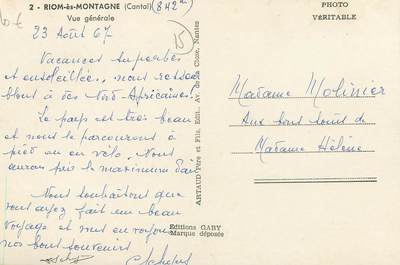 2 - RIOM-ès-MONTAGNE (Cantal) (842 m)
Vue générale
23 Août 67
15
Vacances superbes
et ensoleillées, nous ressem
blons à des Nord-Africaines!
Le pays est très beau
et nous le parcourons à
pied ou en vélo. Nous
aurons pris le maximum d'air
Nous souhaitons que
vous ayez fait un beau
voyage et nous envoyons
nos bons souvenirs
ARTAUD Père et Fils, Édit., Av. de la Close, Nantes
Editions GABY
Marque déposée
PHOTO
VÉRITABLE
Madame Molinier
Aux bons soins de
Madame Hélène